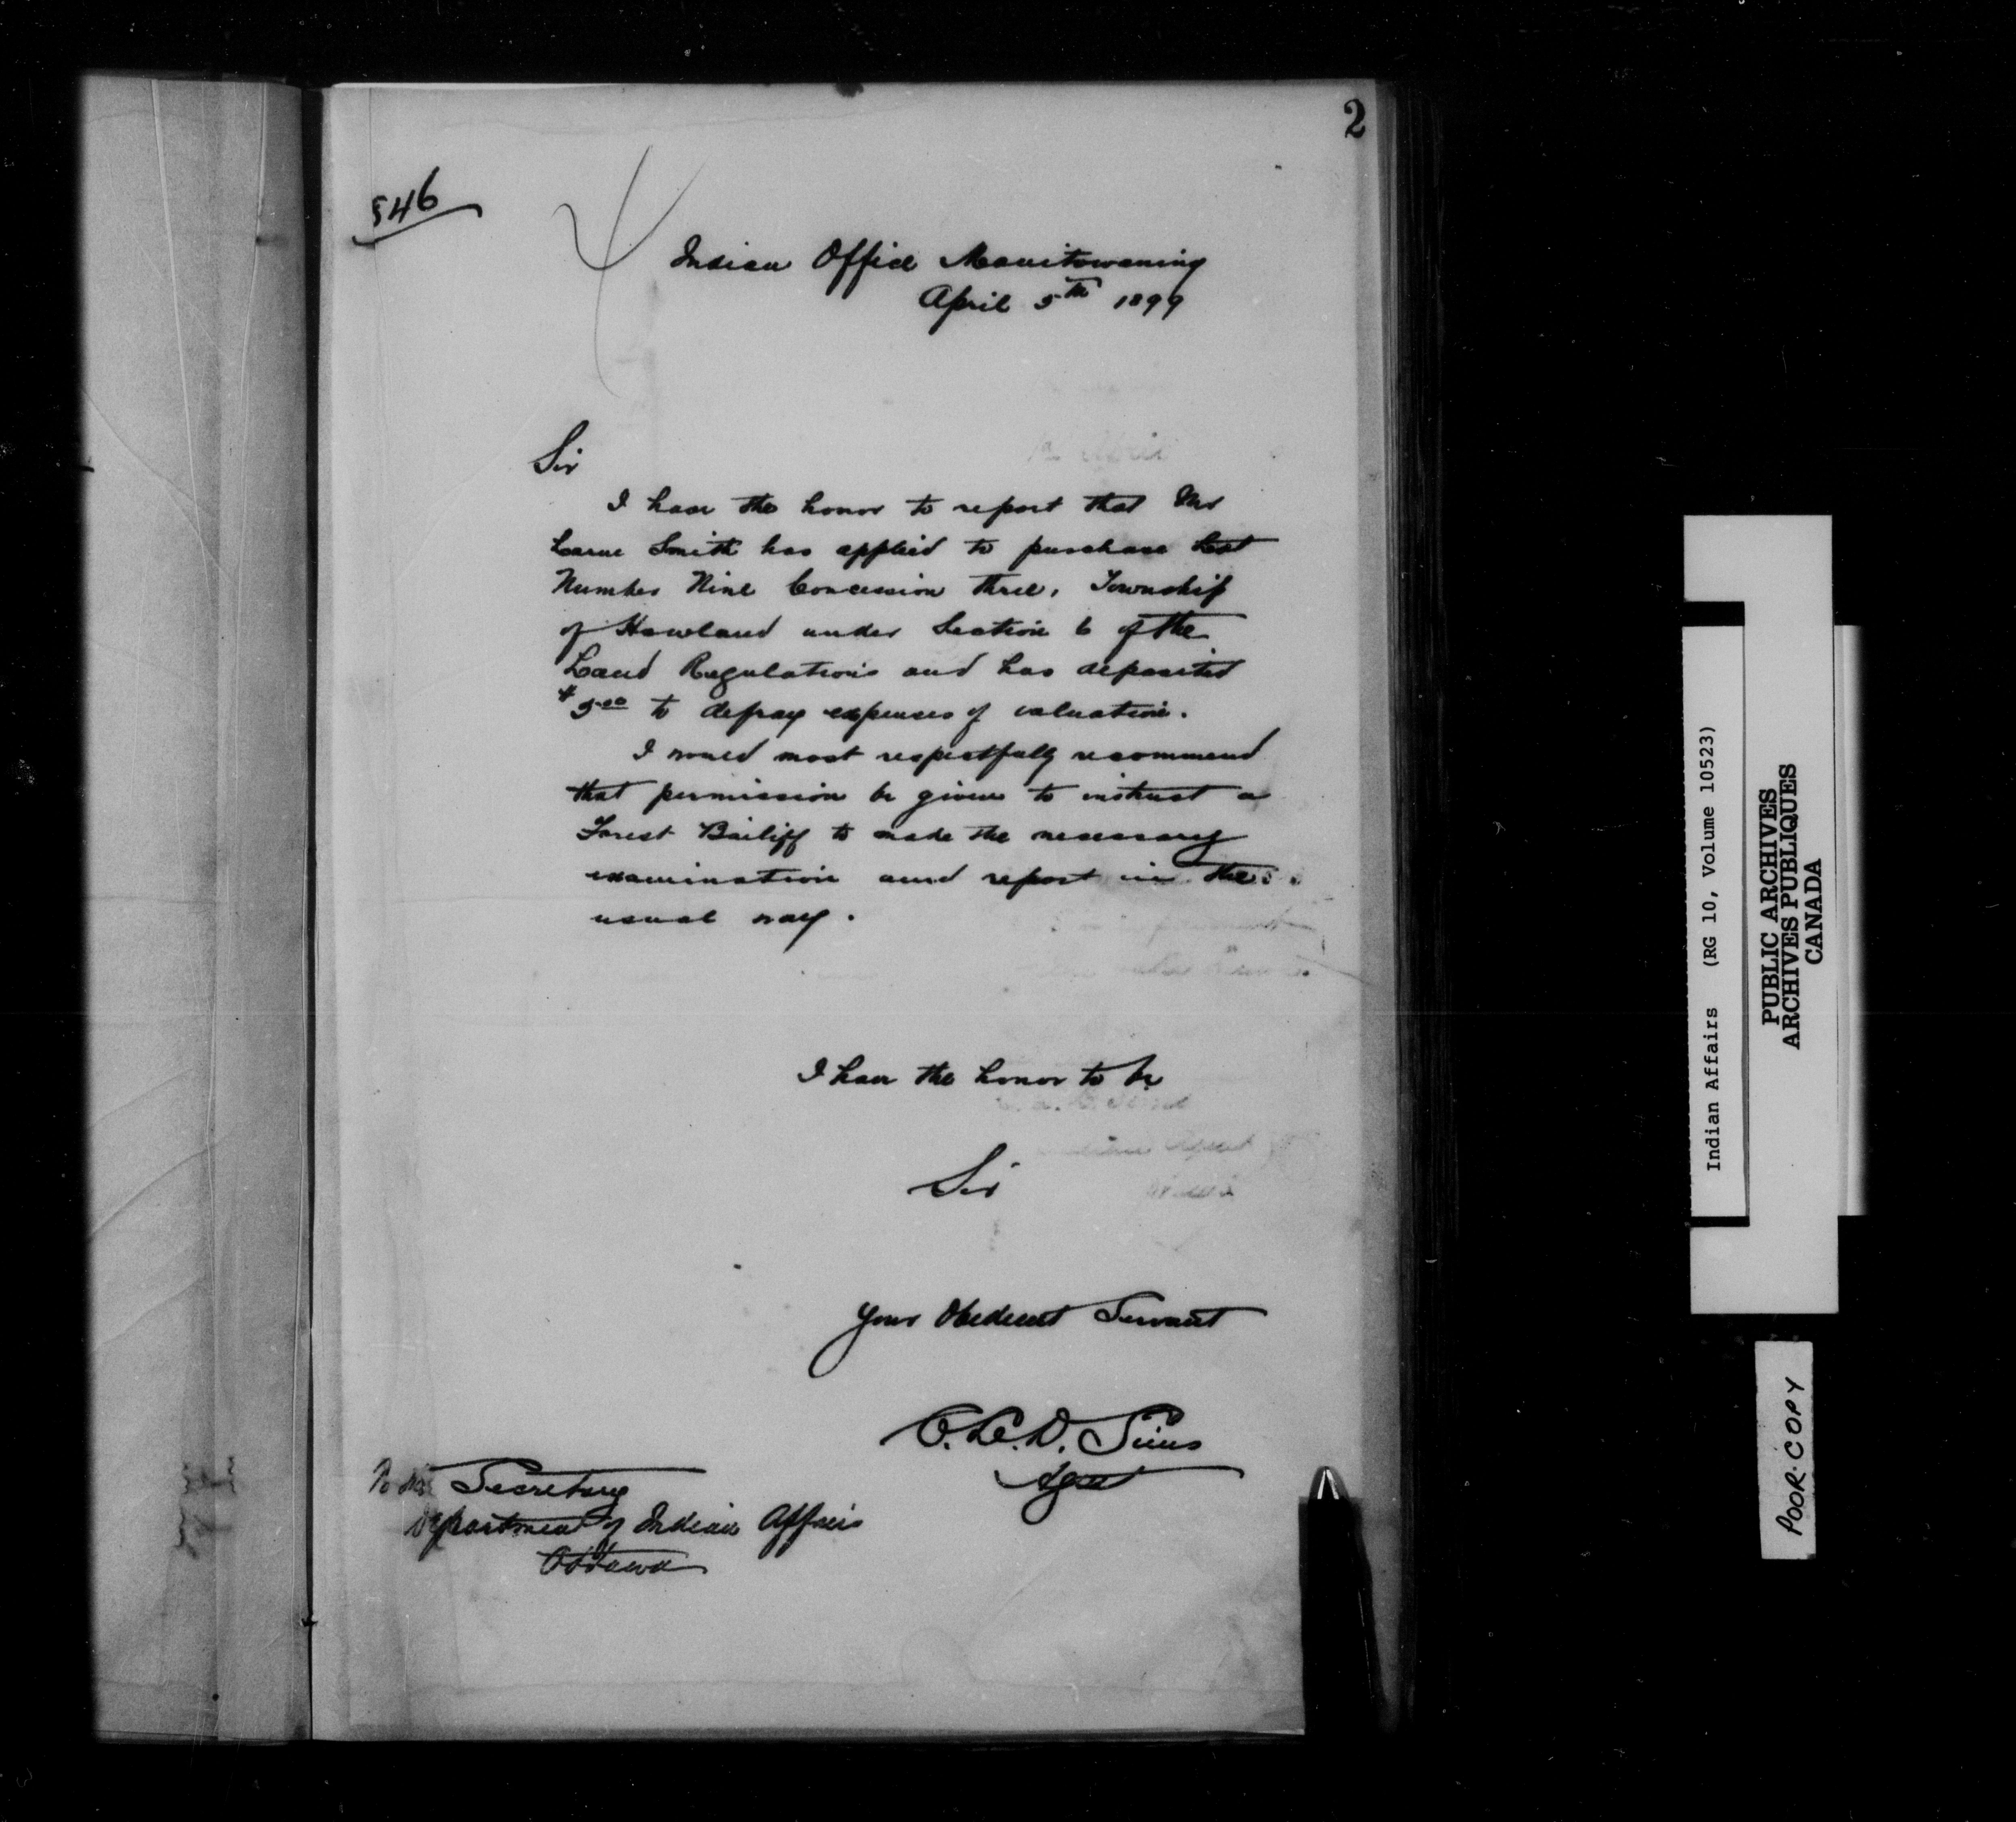 2
546
Indian Office Manitowaning
April 5th 1899
Sir
I have the honor to report that Mr
Lorne Smith has applied to purchase Lot
Number Nine Concession three, Township
of Howland under Section 6 of the
Land Regulations and has deposited
$5.00 to defray expenses of valuation.
I would most respectfully recommend
that permission be given to instruct a
Forest Bailiff to make the necessary
examination and report in the
usual way.
I have the honor to be
Sir
Your Obedient Servant
C. L. D. Sims
Agent
To the Secretary
Department of Indian Affairs
Ottawa
Indian Affairs (RG 10, Volume 10523)
PUBLIC ARCHIVES
ARCHIVES PUBLIQUES
CANADA
POOR COPY